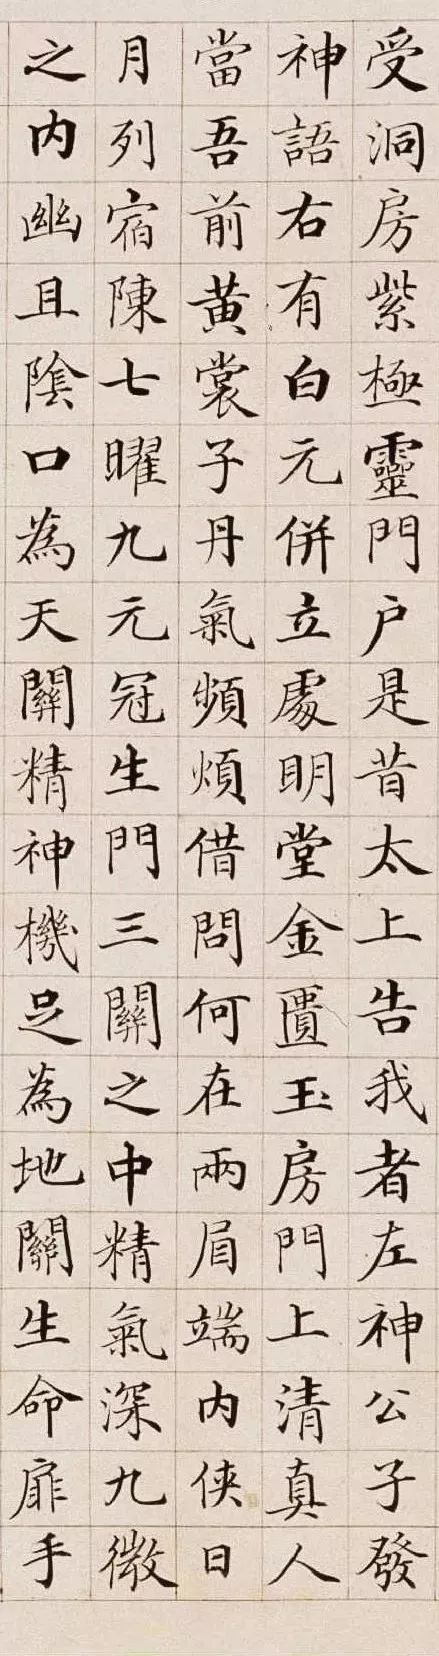 受洞房紫極靈門户是昔太上告我者左神公子發
神語右有白元併立處明堂金匱玉房門上清真人
當吾前黃裳子丹氣頻煩借問何在兩眉端内侠日
月列宿陳七曜九元冠生門三關之中精氣深九微
之内幽且陰口為天關精神機足為地關生命扉手